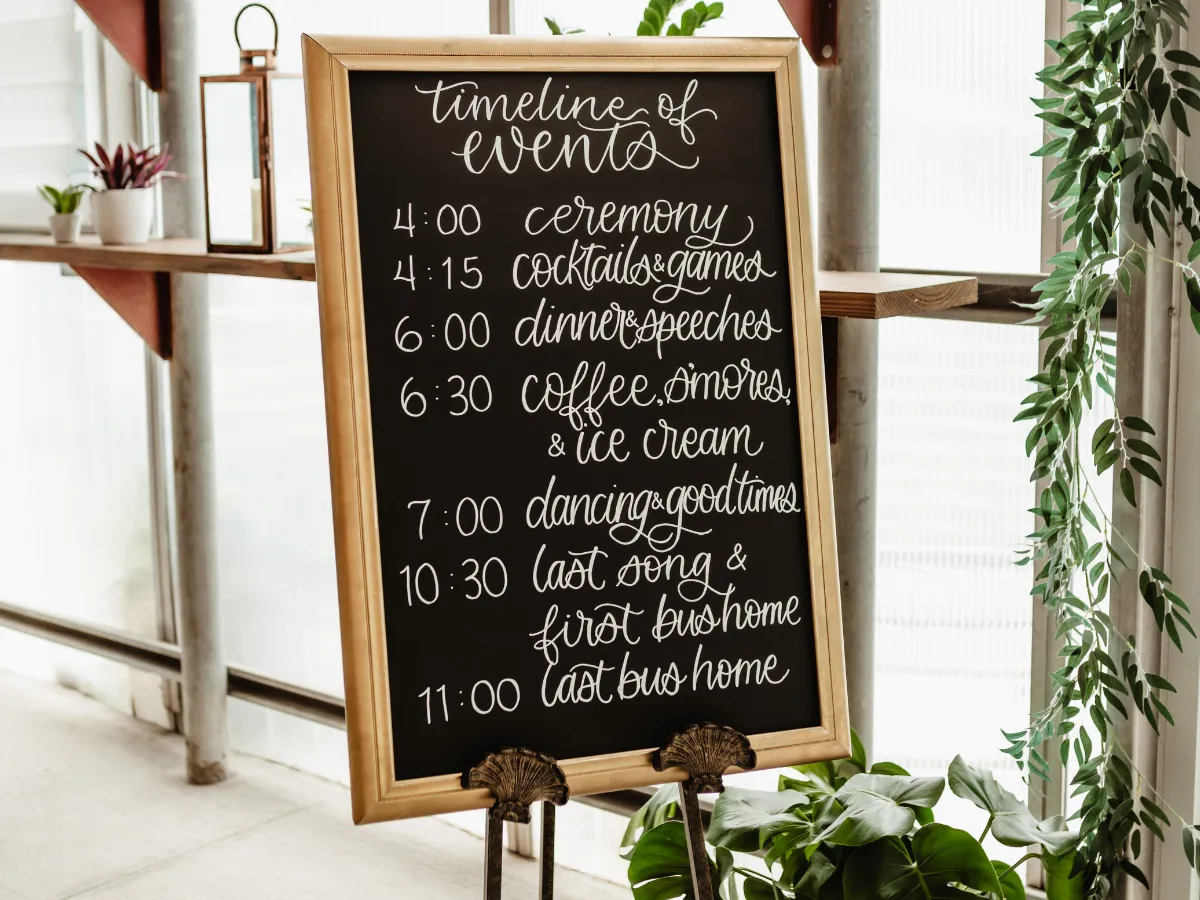 timeline of
events
4:00 ceremony
4:15 cocktails & games
6:00 dinner & speeches
6:30 coffee, s'mores,
& ice cream
7:00 dancing & good times
10:30 last song &
first bus home
11:00 last bus home